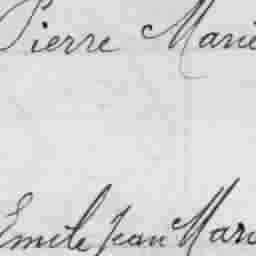 Pierre Marie
Emile Jean Mari